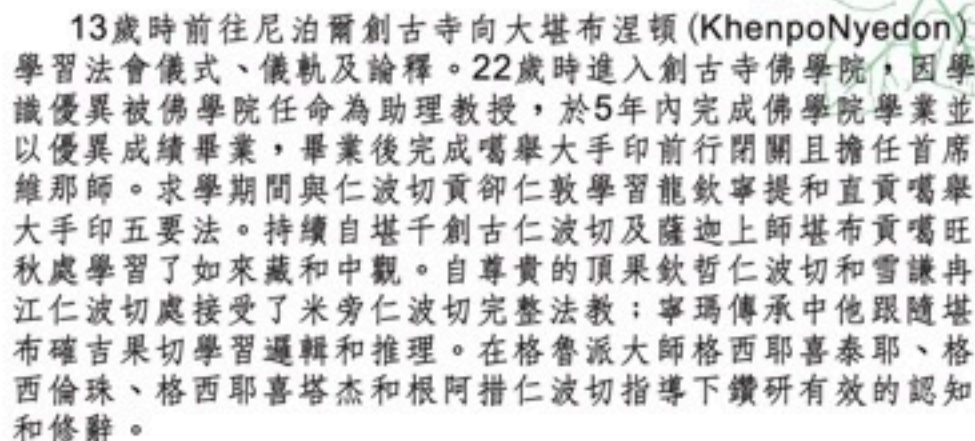 13歲時前往尼泊爾創古寺向大堪布涅頓(KhenpoNyedon)
學習法會儀式、儀軌及論釋。22歲時進入創古寺佛學院，因學
識優異被佛學院任命為助理教授，於5年內完成佛學院學業並
以優異成績畢業，畢業後完成噶舉大手印前行閉關且擔任首席
維那師。求學期間與仁波切貢卻仁敦學習龍欽寧提和直貢噶舉
大手印五要法。持續自堪千創古仁波切及薩迦上師堪布貢噶旺
秋處學習了如來藏和中觀。自尊貴的頂果欽哲仁波切和雪謙冉
江仁波切處接受了米旁仁波切完整法教；寧瑪傳承中他跟隨堪
布確吉果切學習邏輯和推理。在格魯派大師格西耶喜泰耶、格
西倫珠、格西耶喜塔杰和根阿措仁波切指導下鑽研有效的認知
和修辭。